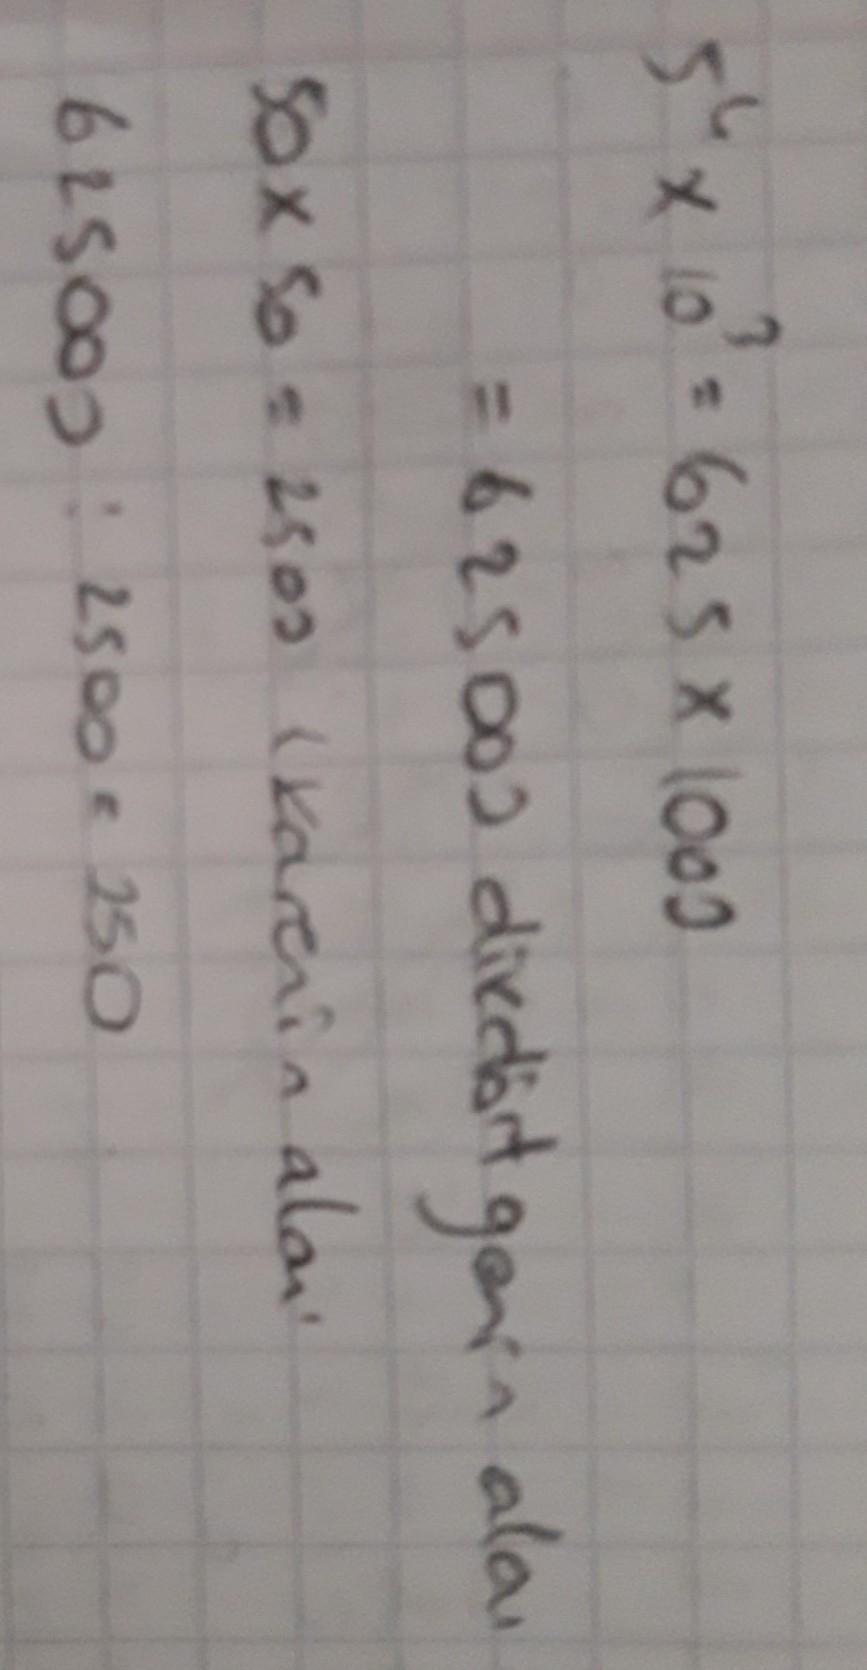 5⁴ x 10³ = 625 x 1000
= 625000 dikdörtgenin alanı
50 x 50 = 2500 (karenin alanı
625000 : 2500 = 250